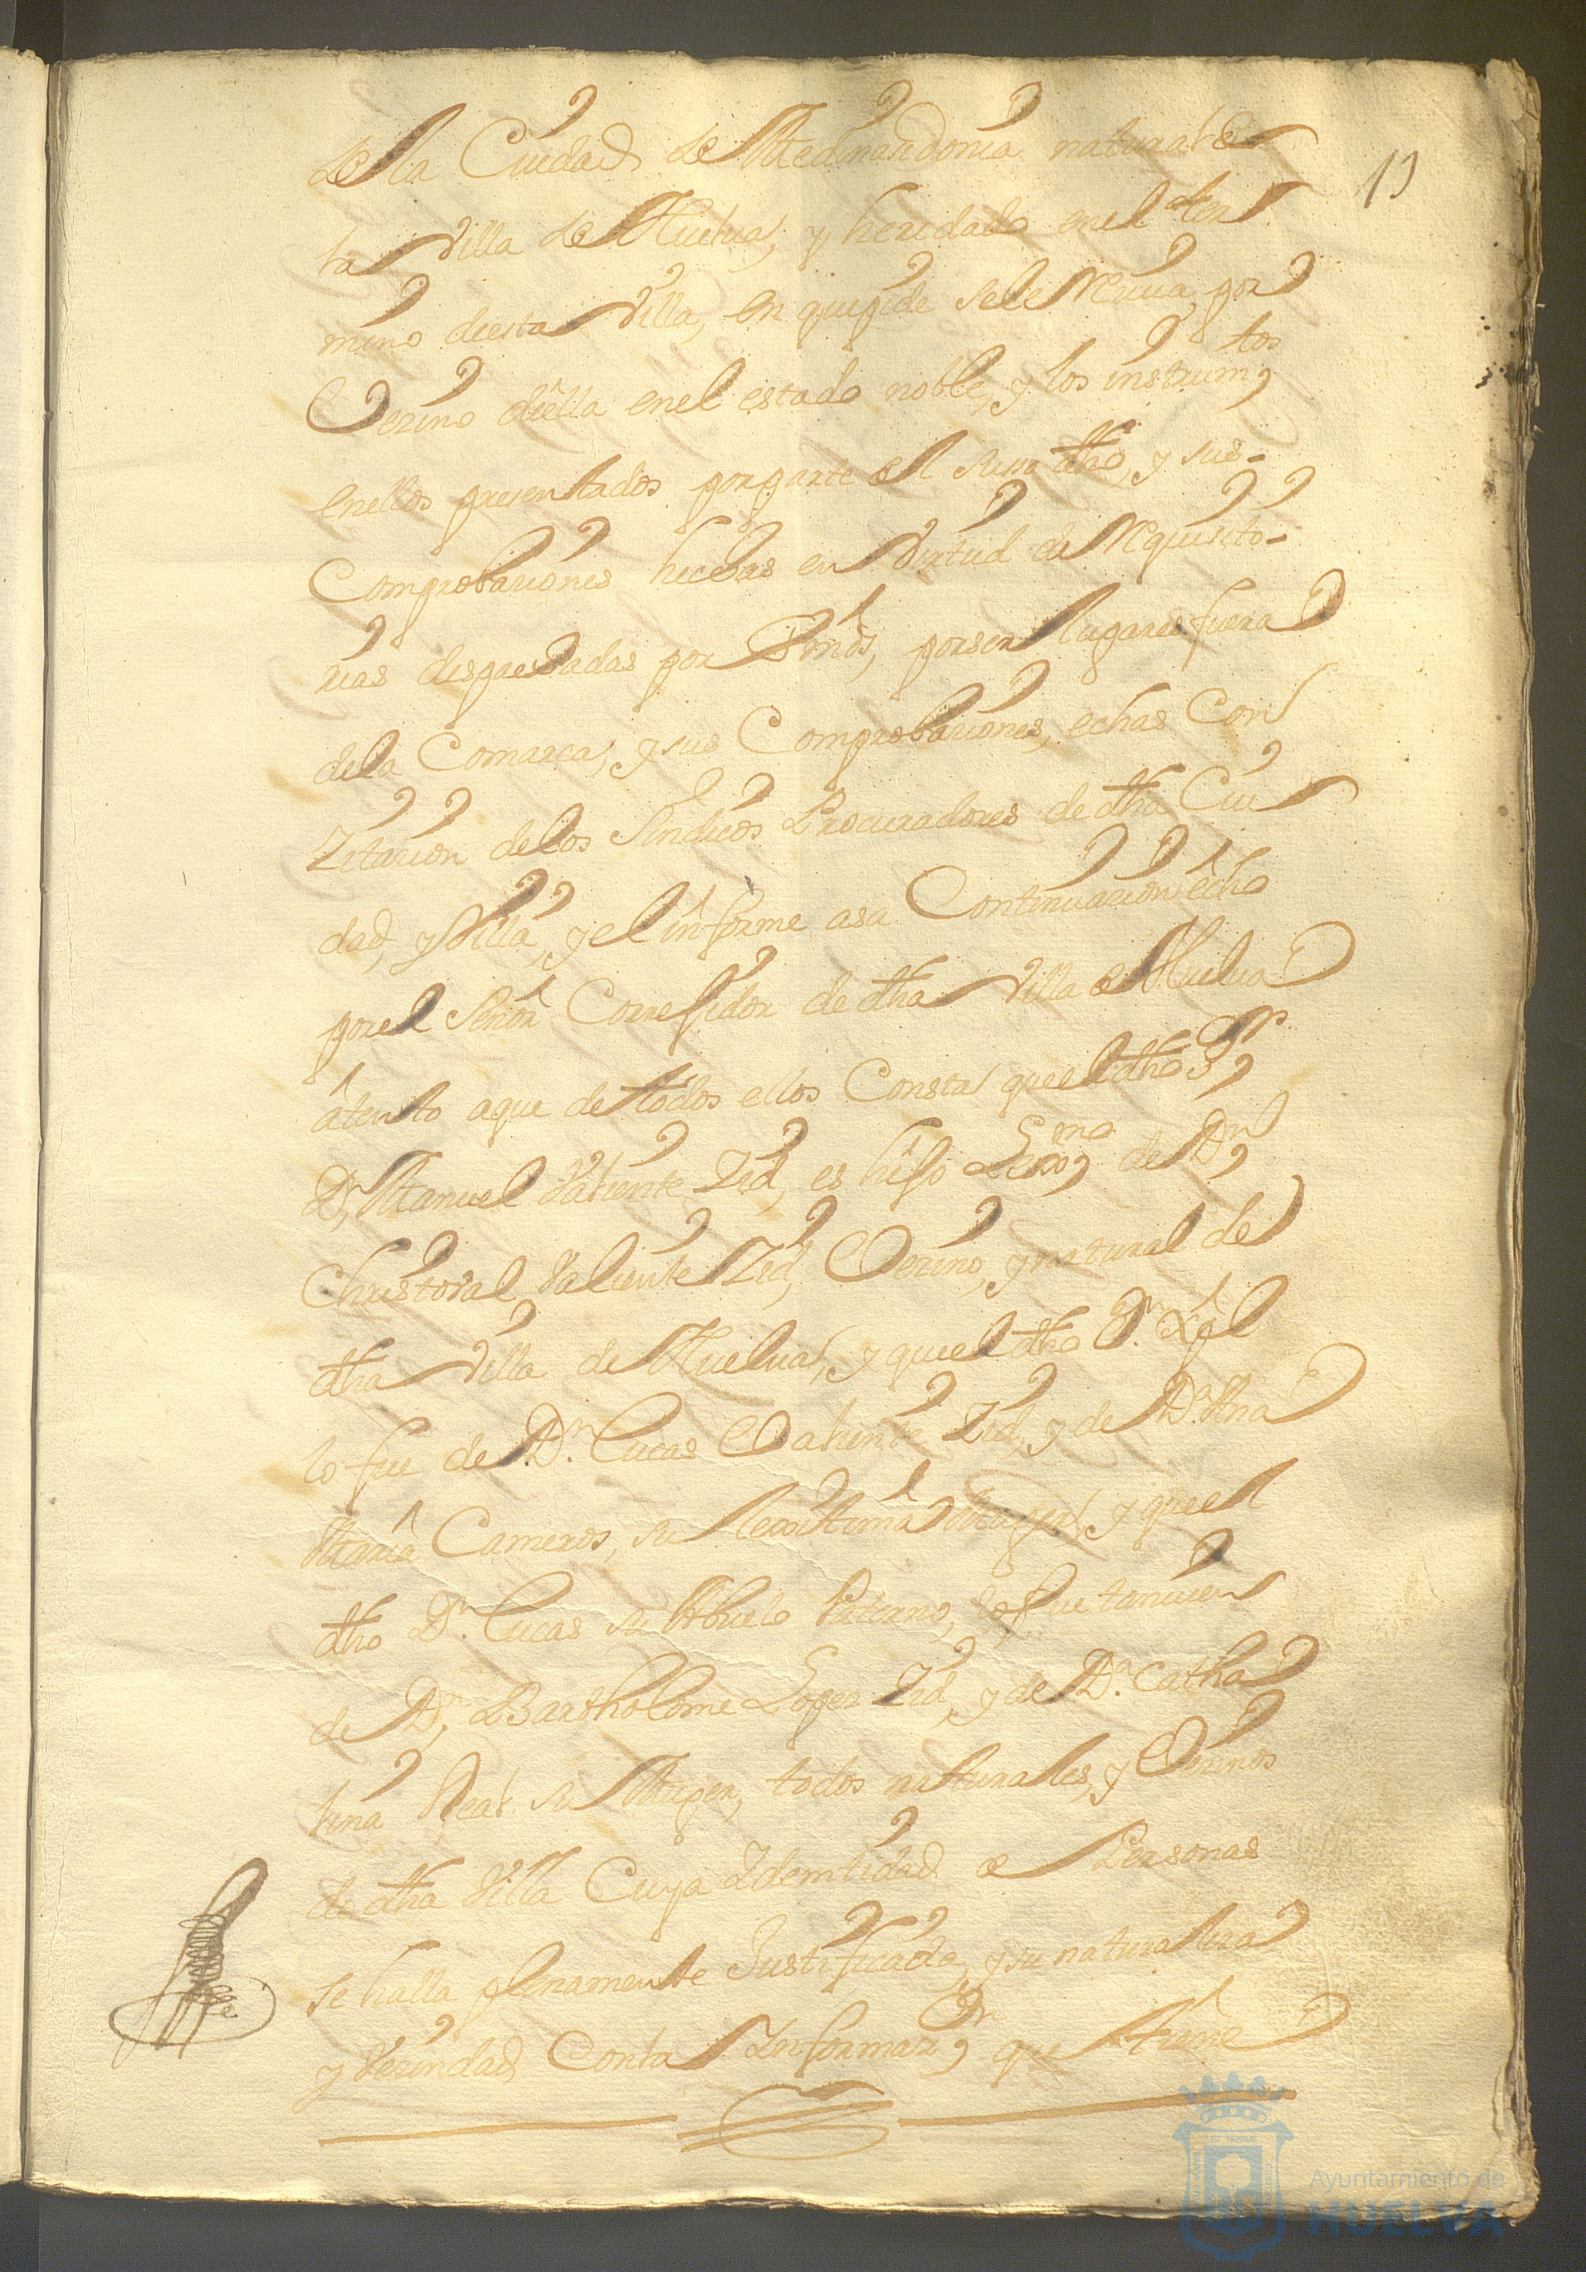 de la Ciudad de Medinasidonia natural de
la Villa de Huelva, y heredado en el ter
mino de esta Villa, en que pide se le Reciva por
Vezino della en el estado noble, y los instrum.tos
en ellos presentados por parte del suso dho, y sus
Comprobaciones hechas en Virtud de Requisito-
rias despachadas por Dhos, por ser lugares fuera
de la Comarca, y sus Comprobaciones, echas Con
Zitacion de los Sindicos Procuradores de dha Ciu
dad, y Villa, y el informe a su Continuacion echo
por el Señor Correjidor de dha Villa de Huelva
atento a que de todos ellos Consta que el dho
Dn Manuel Valiente Zid, es hijo Lexmo de Dn
Christoval Valiente Zid, Vezino, y natural de
dha Villa de Huelva, y que el dho Dn Xptl
lo fue de Dn Lucas Valiente Zid, y de Da Ana
Maria Cameros, su lexitima Mujer, y que el
dho Dn Lucas su Abuelo Paterno, lo fue tamvien
de Dn Bartholome Lopez Zid, y de Da Catha
lina Real su Muger, todos naturales, y Vezinos
de dha Villa Cuya Ydemtidad de Personas
se halla plenamente Justificada, y su naturaleza
y Vezindad Con la Informazn que tiene
13
Ayuntamiento de
HUELVA